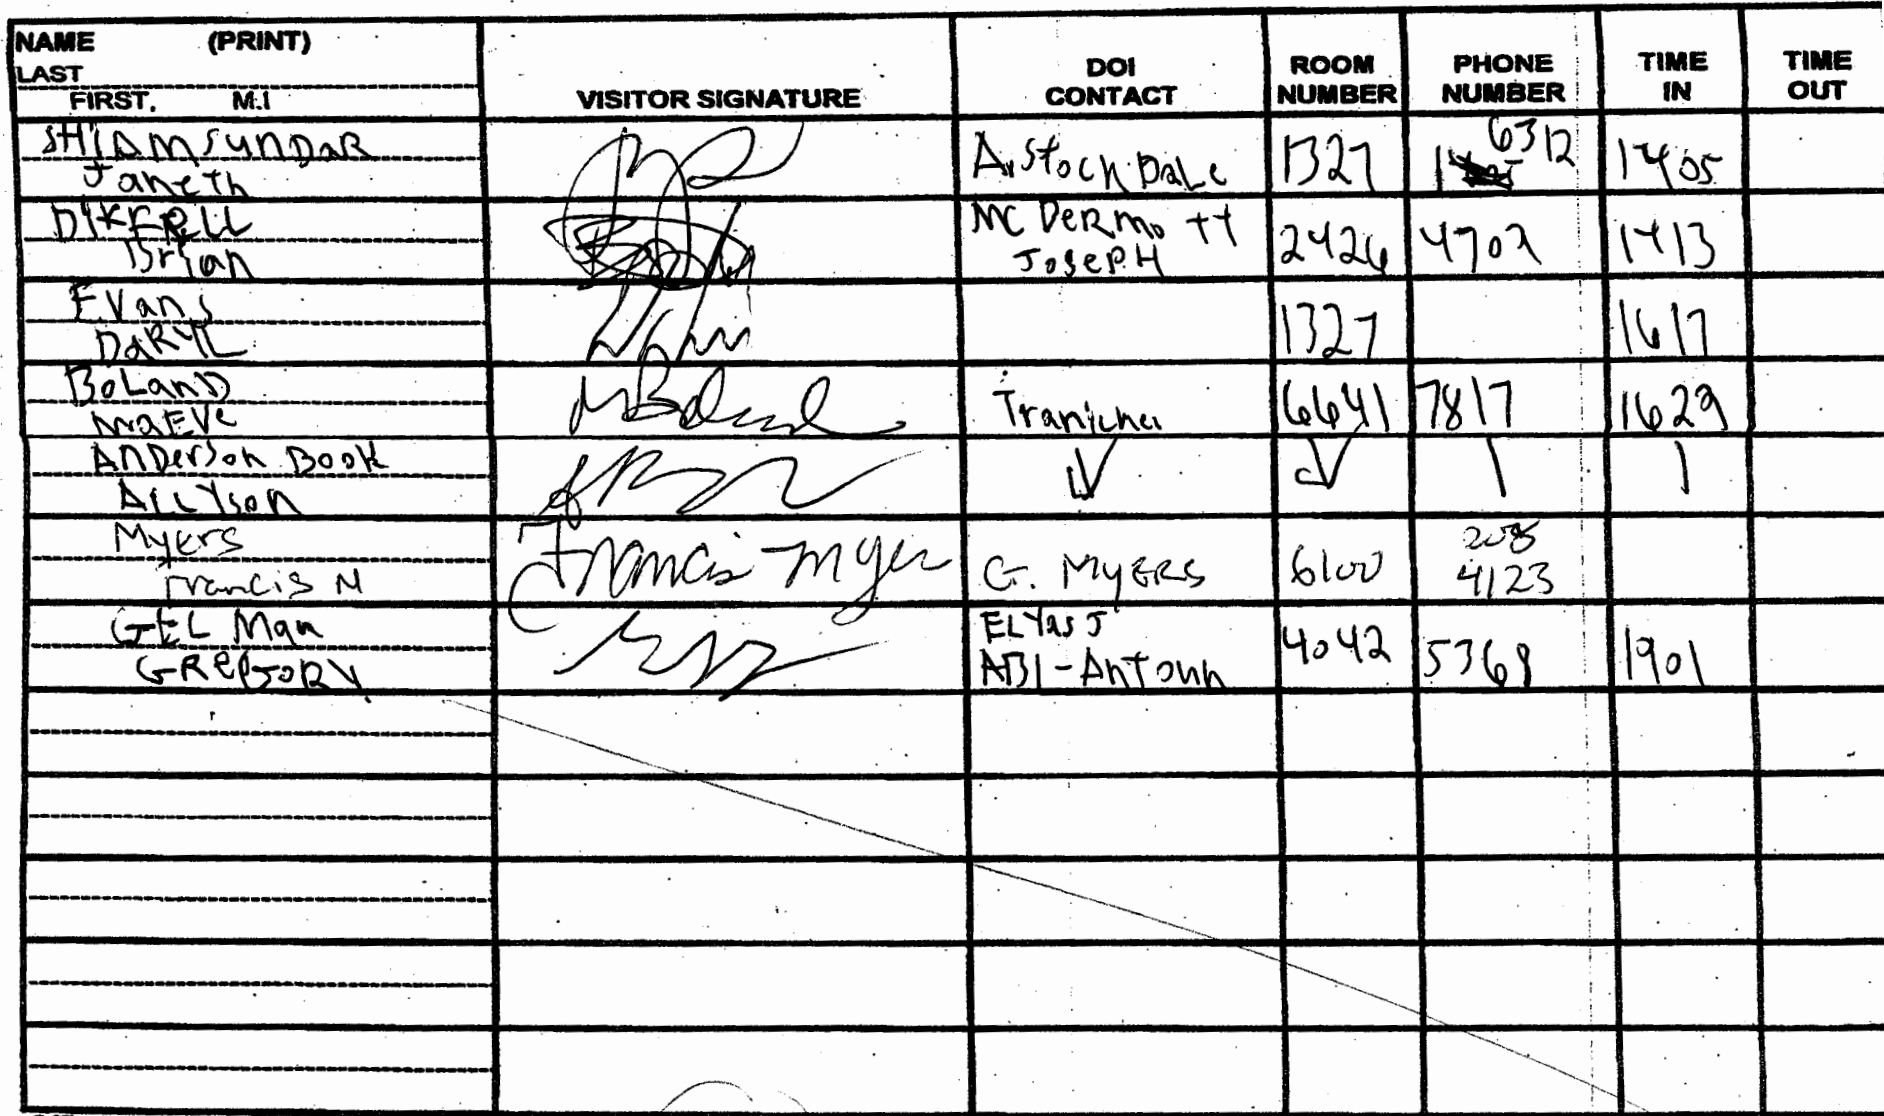 NAME (PRINT)
LAST
FIRST. M.I
VISITOR SIGNATURE
DOI
CONTACT
ROOM
NUMBER
PHONE
NUMBER
TIME
IN
TIME
OUT
SHIAMSUNDAR
Janeth
A. StockDaLe
1327
6312
1405
DIKFELL
Brian
McDeRmott
JosePH
2426
4702
1413
Evans
DaRYL
1327
1617
BoLanD
MaEVe
6641
7817
1629
AnDerson Book
ALLYson
Myers
Francis M
Francis Myer
G. MYERS
6100
208
4123
GEL Man
GREGORY
ELYas J
ABI-Antoun
4042
5369
1901